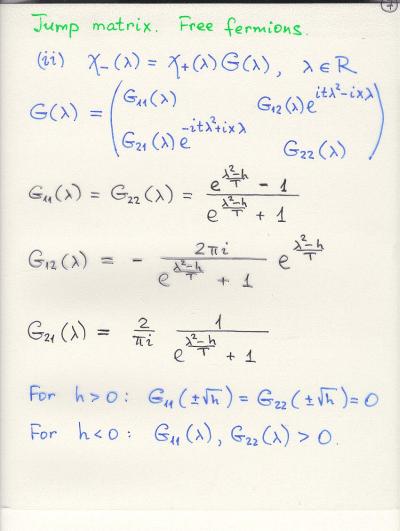 Jump matrix. Free fermions.
(ii) χ₋(λ) = χ₊(λ)G(λ), λ∈R
G(λ) = ( G₁₁(λ) G₁₂(λ)e^{itλ²-ixλ}
G₂₁(λ)e^{-itλ²+ixλ} G₂₂(λ) )
G₁₁(λ) = G₂₂(λ) = (e^{(λ²-h)/T} - 1) / (e^{(λ²-h)/T} + 1)
G₁₂(λ) = - 2πi / (e^{(λ²-h)/T} + 1) e^{(λ²-h)/T}
G₂₁(λ) = 2/(πi) 1 / (e^{(λ²-h)/T} + 1)
For h>0: G₁₁(±√h) = G₂₂(±√h) = 0
For h<0: G₁₁(λ), G₂₂(λ) > 0.